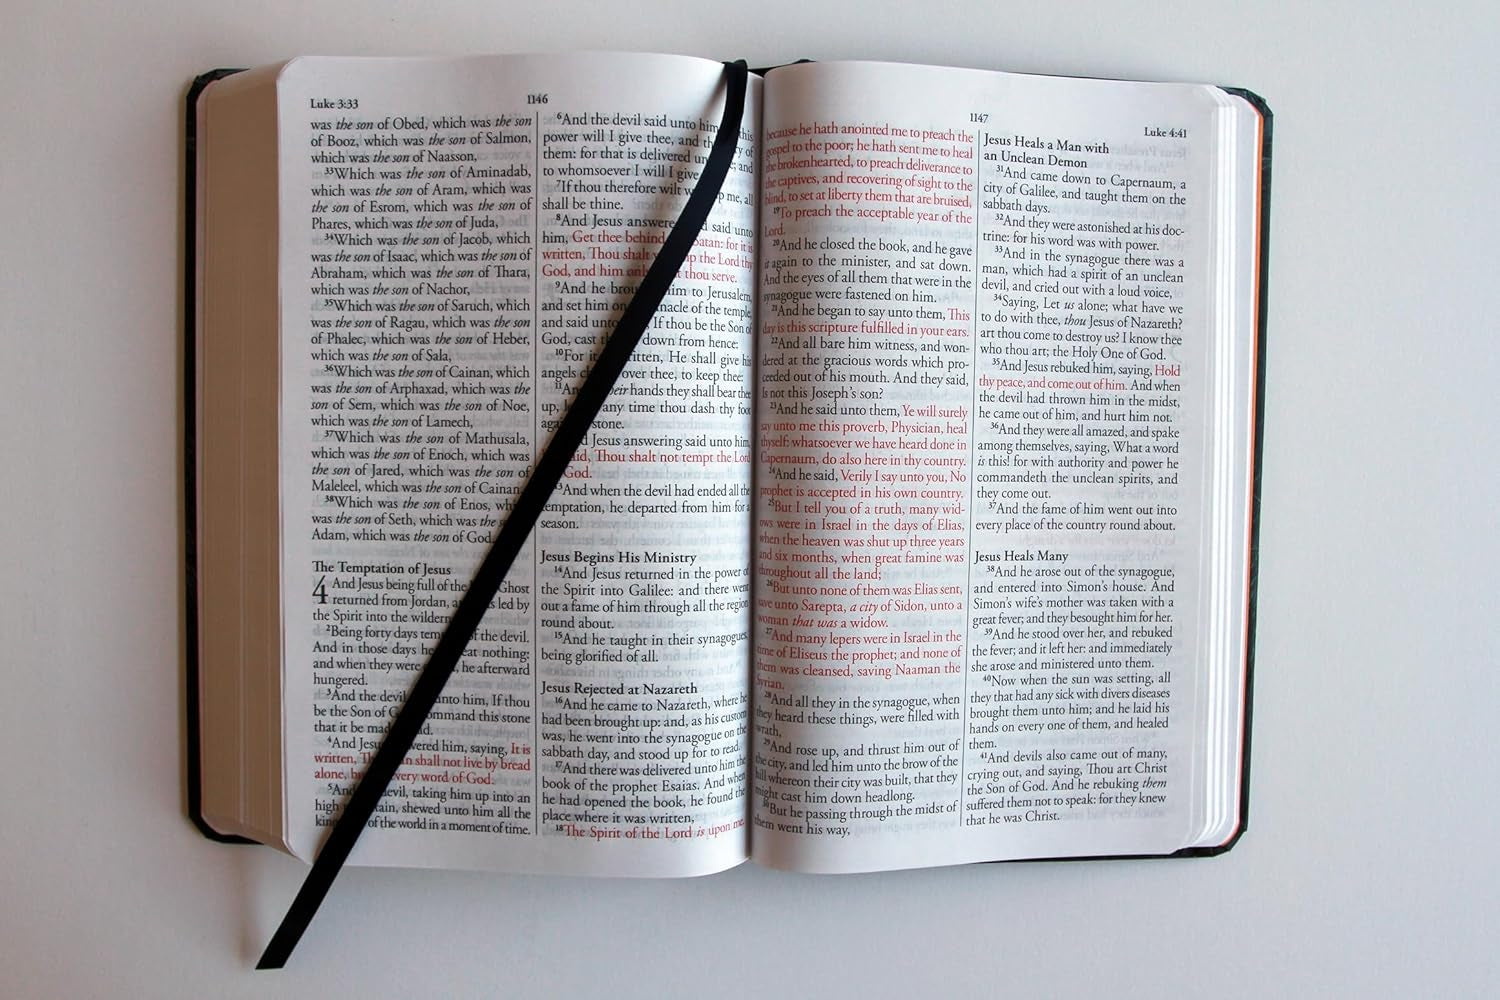 Luke 3:33
1146
was the son of Obed, which was the son
of Booz, which was the son of Salmon,
which was the son of Naasson,
33Which was the son of Aminadab,
which was the son of Aram, which was
the son of Esrom, which was the son of
Phares, which was the son of Juda,
34Which was the son of Jacob, which
was the son of Isaac, which was the son of
Abraham, which was the son of Thara,
which was the son of Nachor,
35Which was the son of Saruch, which
was the son of Ragau, which was the son
of Phalec, which was the son of Heber,
which was the son of Sala,
36Which was the son of Cainan, which
was the son of Arphaxad, which was the
son of Sem, which was the son of Noe,
which was the son of Lamech,
37Which was the son of Mathusala,
which was the son of Enoch, which was
the son of Jared, which was the son of
Maleleel, which was the son of Cainan,
38Which was the son of Enos, which
was the son of Seth, which was the
Adam, which was the son of God.
The Temptation of Jesus
4 And Jesus being full of the Ghost
returned from Jordan, led by
the Spirit into the
2Being forty days of the devil.
And in those days eat nothing:
and when they were he afterward
hungered.
3And the devil unto him, If thou
be the Son of command this stone
that it be
4And him, saying, It is
written, shall not live by bread
alone, every word of God.
5And devil, taking him up into an
high shewed unto him all the
of the world in a moment of time.
6And the devil said unto him, this
power will I give thee, and of
them: for that is delivered and
to whomsoever I will I give
7If thou therefore wilt me, all
shall be thine.
8And Jesus said unto
him, Get thee behind Satan: for it is
written, Thou shalt the Lord thy
God, and him thou serve.
9And he him to Jerusalem,
and set him on of the temple,
and said If thou be the Son of
God, cast down from hence:
10For He shall give his
angels over thee, to keep thee:
11And hands they shall bear thee
up, any time thou dash thy foot
stone.
Jesus answering said unto him,
Thou shalt not tempt the Lord
God.
13And when the devil had ended all the
temptation, he departed from him for a
season.
Jesus Begins His Ministry
14And Jesus returned in the power of
the Spirit into Galilee: and there went
out a fame of him through all the region
round about.
15And he taught in their synagogues,
being glorified of all.
Jesus Rejected at Nazareth
16And he came to Nazareth, where he
had been brought up: and, as his custom
was, he went into the synagogue on the
sabbath day, and stood up for to read.
17And there was delivered unto him the
book of the prophet Esaias. And when
he had opened the book, he found the
place where it was written,
18The Spirit of the Lord is upon me,
1147
Luke 4:41
because he hath anointed me to preach the
gospel to the poor; he hath sent me to heal
the brokenhearted, to preach deliverance to
the captives, and recovering of sight to the
blind, to set at liberty them that are bruised,
19To preach the acceptable year of the
Lord.
20And he closed the book, and he gave
it again to the minister, and sat down.
And the eyes of all them that were in the
synagogue were fastened on him.
21And he began to say unto them, This
day is this scripture fulfilled in your ears.
22And all bare him witness, and won-
dered at the gracious words which pro-
ceeded out of his mouth. And they said,
Is not this Joseph's son?
23And he said unto them, Ye will surely
say unto me this proverb, Physician, heal
thyself: whatsoever we have heard done in
Capernaum, do also here in thy country.
24And he said, Verily I say unto you, No
prophet is accepted in his own country.
25But I tell you of a truth, many wid-
ows were in Israel in the days of Elias,
when the heaven was shut up three years
and six months, when great famine was
throughout all the land;
26But unto none of them was Elias sent,
save unto Sarepta, a city of Sidon, unto a
woman that was a widow.
27And many lepers were in Israel in the
time of Eliseus the prophet; and none of
them was cleansed, saving Naaman the
Syrian.
28And all they in the synagogue, when
they heard these things, were filled with
wrath,
29And rose up, and thrust him out of
the city, and led him unto the brow of the
hill whereon their city was built, that they
might cast him down headlong.
30But he passing through the midst of
them went his way,
Jesus Heals a Man with
an Unclean Demon
31And came down to Capernaum, a
city of Galilee, and taught them on the
sabbath days.
32And they were astonished at his doc-
trine: for his word was with power.
33And in the synagogue there was a
man, which had a spirit of an unclean
devil, and cried out with a loud voice,
34Saying, Let us alone; what have we
to do with thee, thou Jesus of Nazareth?
art thou come to destroy us? I know thee
who thou art; the Holy One of God.
35And Jesus rebuked him, saying, Hold
thy peace, and come out of him. And when
the devil had thrown him in the midst,
he came out of him, and hurt him not.
36And they were all amazed, and spake
among themselves, saying, What a word
is this! for with authority and power he
commandeth the unclean spirits, and
they come out.
37And the fame of him went out into
every place of the country round about.
Jesus Heals Many
38And he arose out of the synagogue,
and entered into Simon's house. And
Simon's wife's mother was taken with a
great fever; and they besought him for her.
39And he stood over her, and rebuked
the fever; and it left her: and immediately
she arose and ministered unto them.
40Now when the sun was setting, all
they that had any sick with divers diseases
brought them unto him; and he laid his
hands on every one of them, and healed
them.
41And devils also came out of many,
crying out, and saying, Thou art Christ
the Son of God. And he rebuking them
suffered them not to speak: for they knew
that he was Christ.